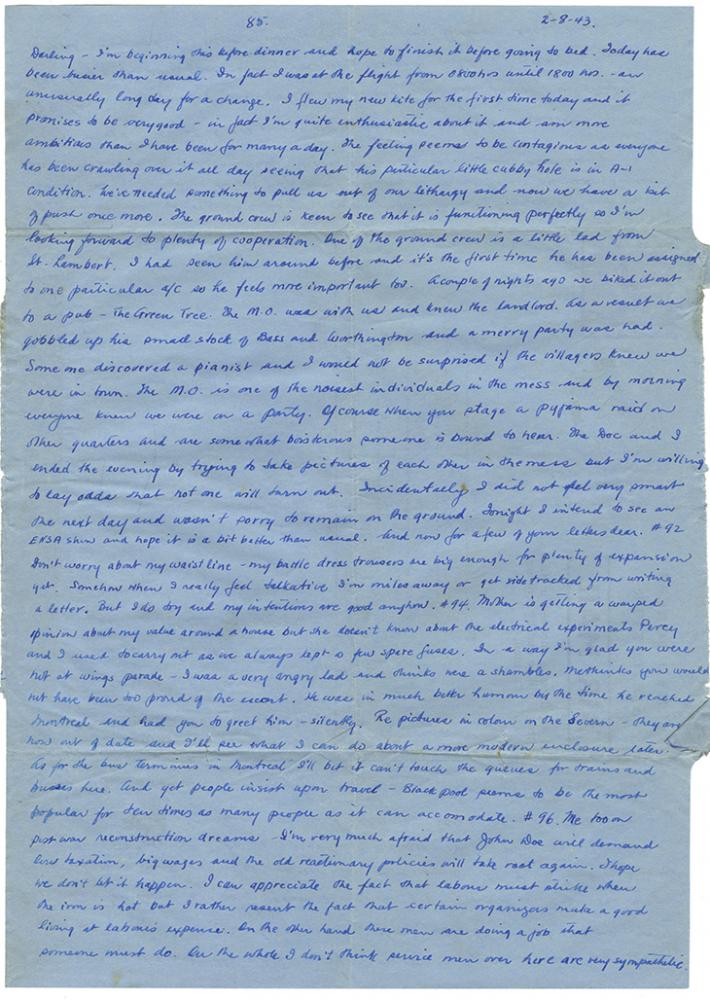 85.
2-8-43.
Darling - I'm beginning this before dinner and hope to finish it before going to bed. Today has
been busier than usual. In fact I was at the flight from 0800 hrs until 1800 hrs. - an
unusually long day for a change. I flew my new kite for the first time today and it
promises to be very good - in fact I'm quite enthusiastic about it and am more
ambitious than I have been for many a day. The feeling seems to be contagious as everyone
has been crawling over it all day seeing that his particular little cubby hole is in A-1
condition. We've needed something to pull us out of our lethargy and now we have a bit
of push once more. The ground crew is keen to see that it is functioning perfectly so I'm
looking forward to plenty of cooperation. One of the ground crew is a little lad from
St. Lambert. I had seen him around before and it's the first time he has been assigned
to one particular a/c so he feels more important too. A couple of nights ago we biked it out
to a pub - The Green Tree. The M.O. was with us and knew the landlord. As a result we
gobbled up his small stock of Bass and Worthington and a merry party was had.
Some one discovered a pianist and I would not be surprised if the villagers knew we
were in town. The M.O. is one of the noisest individuals in the mess and by morning
everyone knew we were on a party. Of course when you stage a pyjama raid on
other quarters and are somewhat boistrous someone is bound to hear. The Doc and I
ended the evening by trying to take pictures of each other in the mess but I'm willing
to lay odds that not one will turn out. Incidentally I did not feel very smart
the next day and wasn't sorry to remain on the ground. Tonight I intend to see an
ENSA show and hope it is a bit better than usual. And now for a few of your letters dear. #92
Don't worry about my waist line - my battle dress trousers are big enough for plenty of expansion
yet. Somehow when I really feel talkative I'm miles away or get side tracked from writing
a letter. But I do try and my intentions are good anyhow. #94. Mother is getting a warped
opinion about my value around a house but she doesn't know about the electrical experiments Percy
and I used to carry out as we always kept a few spare fuses. In a way I'm glad you were
not at wings parade - I was a very angry lad and thinks were a shambles. Methinks you would
not have been too proud of the escort. He was in much better humour by the time he reached
Montreal and had you to greet him - silently. Re pictures in colour on the Severn - they are
now out of date and I'll see what I can do about a more modern enclosure later.
As for the bus terminus in Montreal I'll bet it can't touch the queues for trains and
busses here. And yet people insist upon travel - Blackpool seems to be the most
popular for ten times as many people as it can accomodate. #96. Me too on
post war reconstruction dreams - I'm very much afraid that John Doe will demand
low taxation, big wages and the old reactionary policies will take root again. I hope
we don't let it happen. I can appreciate the fact that labour must strike when
the iron is hot but I rather resent the fact that certain organizers make a good
living at labour's expense. On the other hand these men are doing a job that
someone must do. On the whole I don't think service men over here are very sympathetic.